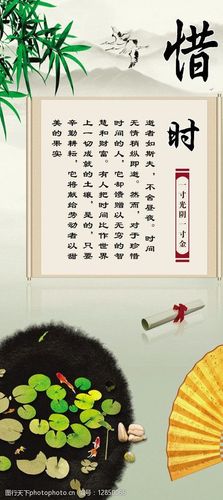 惜
时
一寸光阴一寸金
逝者如斯夫，不舍昼夜。时间
无情稍纵即逝。然而，对于珍惜
时间的人，它却馈赠以无穷的智
慧和财富。有人把时间比作世界
上一切成就的土壤，是的，只要
辛勤耕耘，它将献给劳动者以甜
美的果实